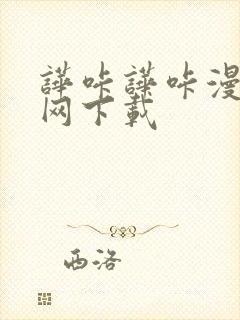 譁咔譁咔漫
网下载
西洛